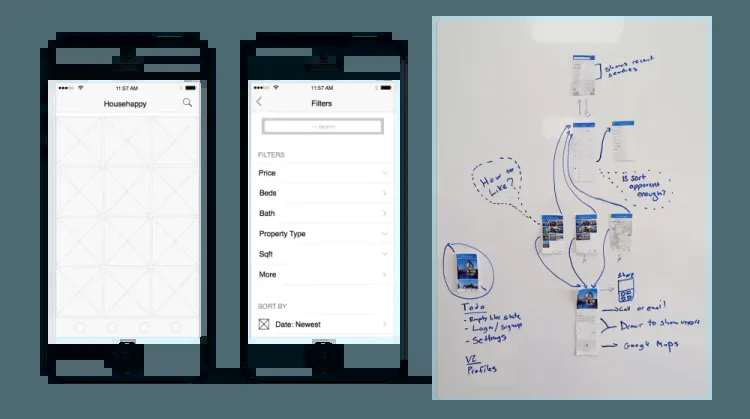 11:57 AM
Househappy
11:57 AM
Filters
Search
FILTERS
Price
Beds
Bath
Property Type
Sqft
More
SORT BY
Date: Newest
shows recent
searches
How to
Like?
Is sort
apparent
enough?
Share
Call or email
Drawr to show more
Google Maps
Todo
- Empty like state
- Login/signup
- Settings
V2
Profiles